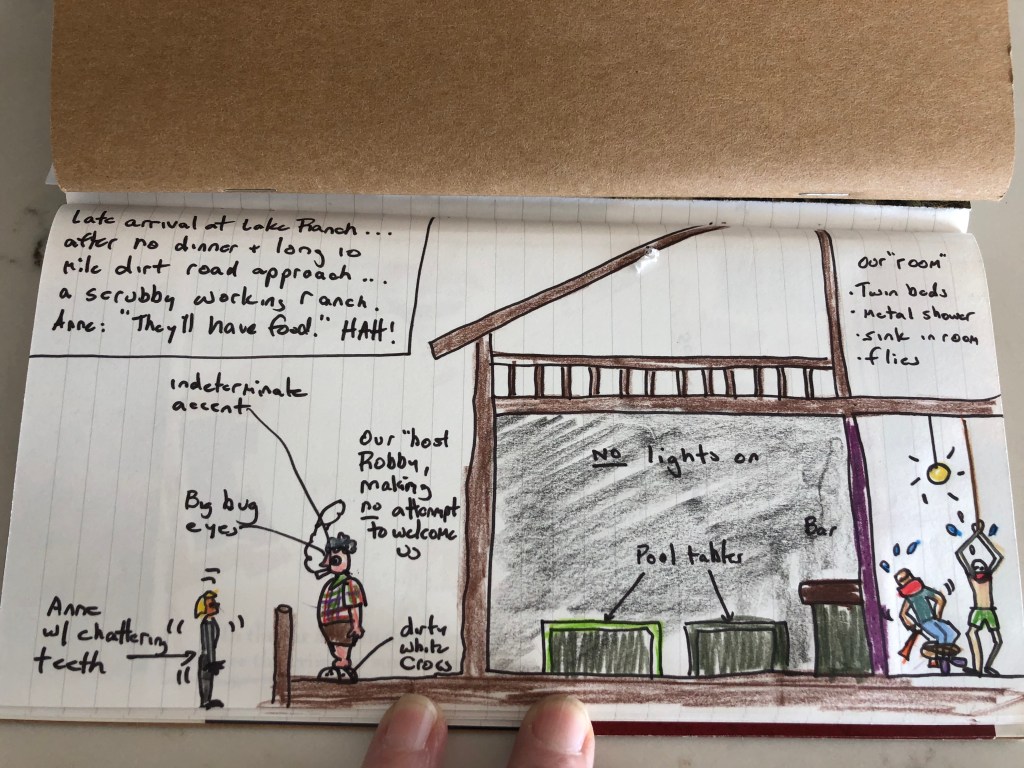 Late arrival at Lake Ranch...
after no dinner + long 10
mile dirt road approach...
a scrubby working ranch.
Anne: "They'll have food." HAH!
Our "room"
• Twin beds
• Metal shower
• sink in room
• flies
indeterminate
accent
Our "host
Robby,
making
no attempt
to welcome
us
By bug
eyes
NO lights on
Bar
Pool tables
Anne
w/ chattering
teeth
dirty
white
Crocs